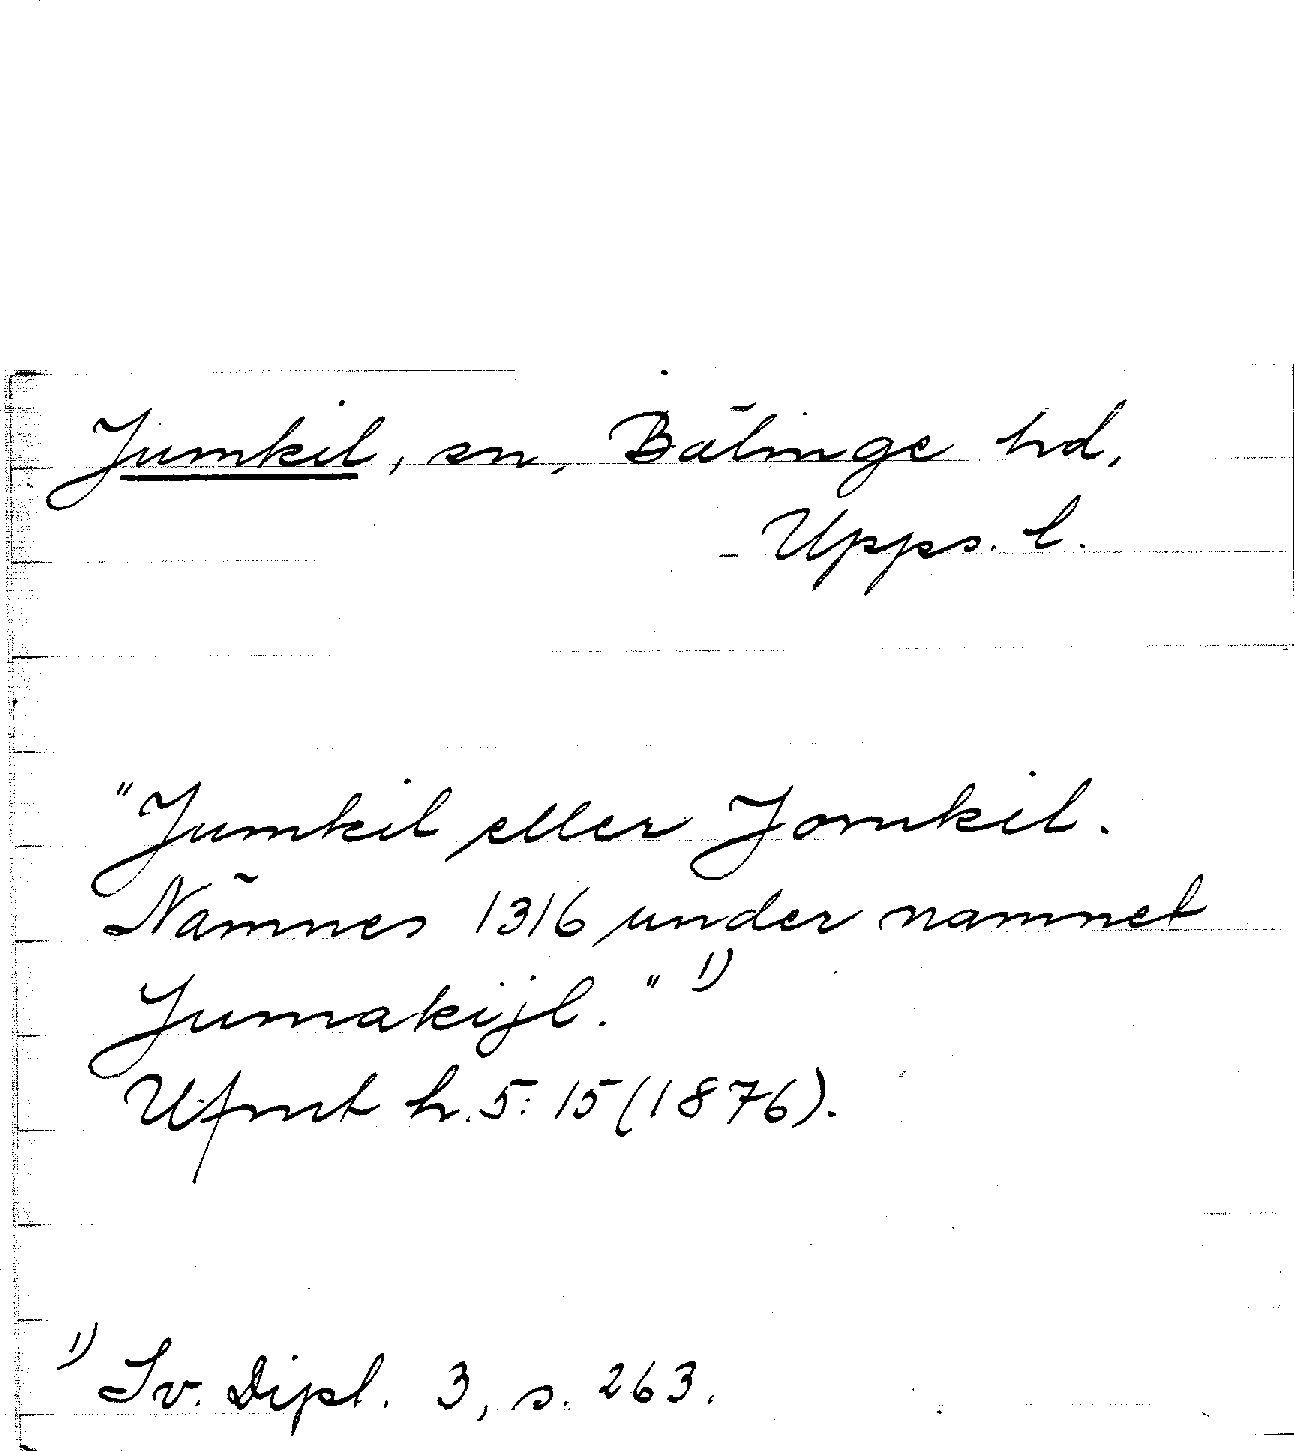 Jumkil, sn, Bälinge hd,
Upps. l.
"Jumkil eller Jomkil.
Nämnes 1316 under namnet
Jumakijl." 1)
Ufmt h. 5: 15 (1876).
1) Sv. Dipl. 3, s. 263.